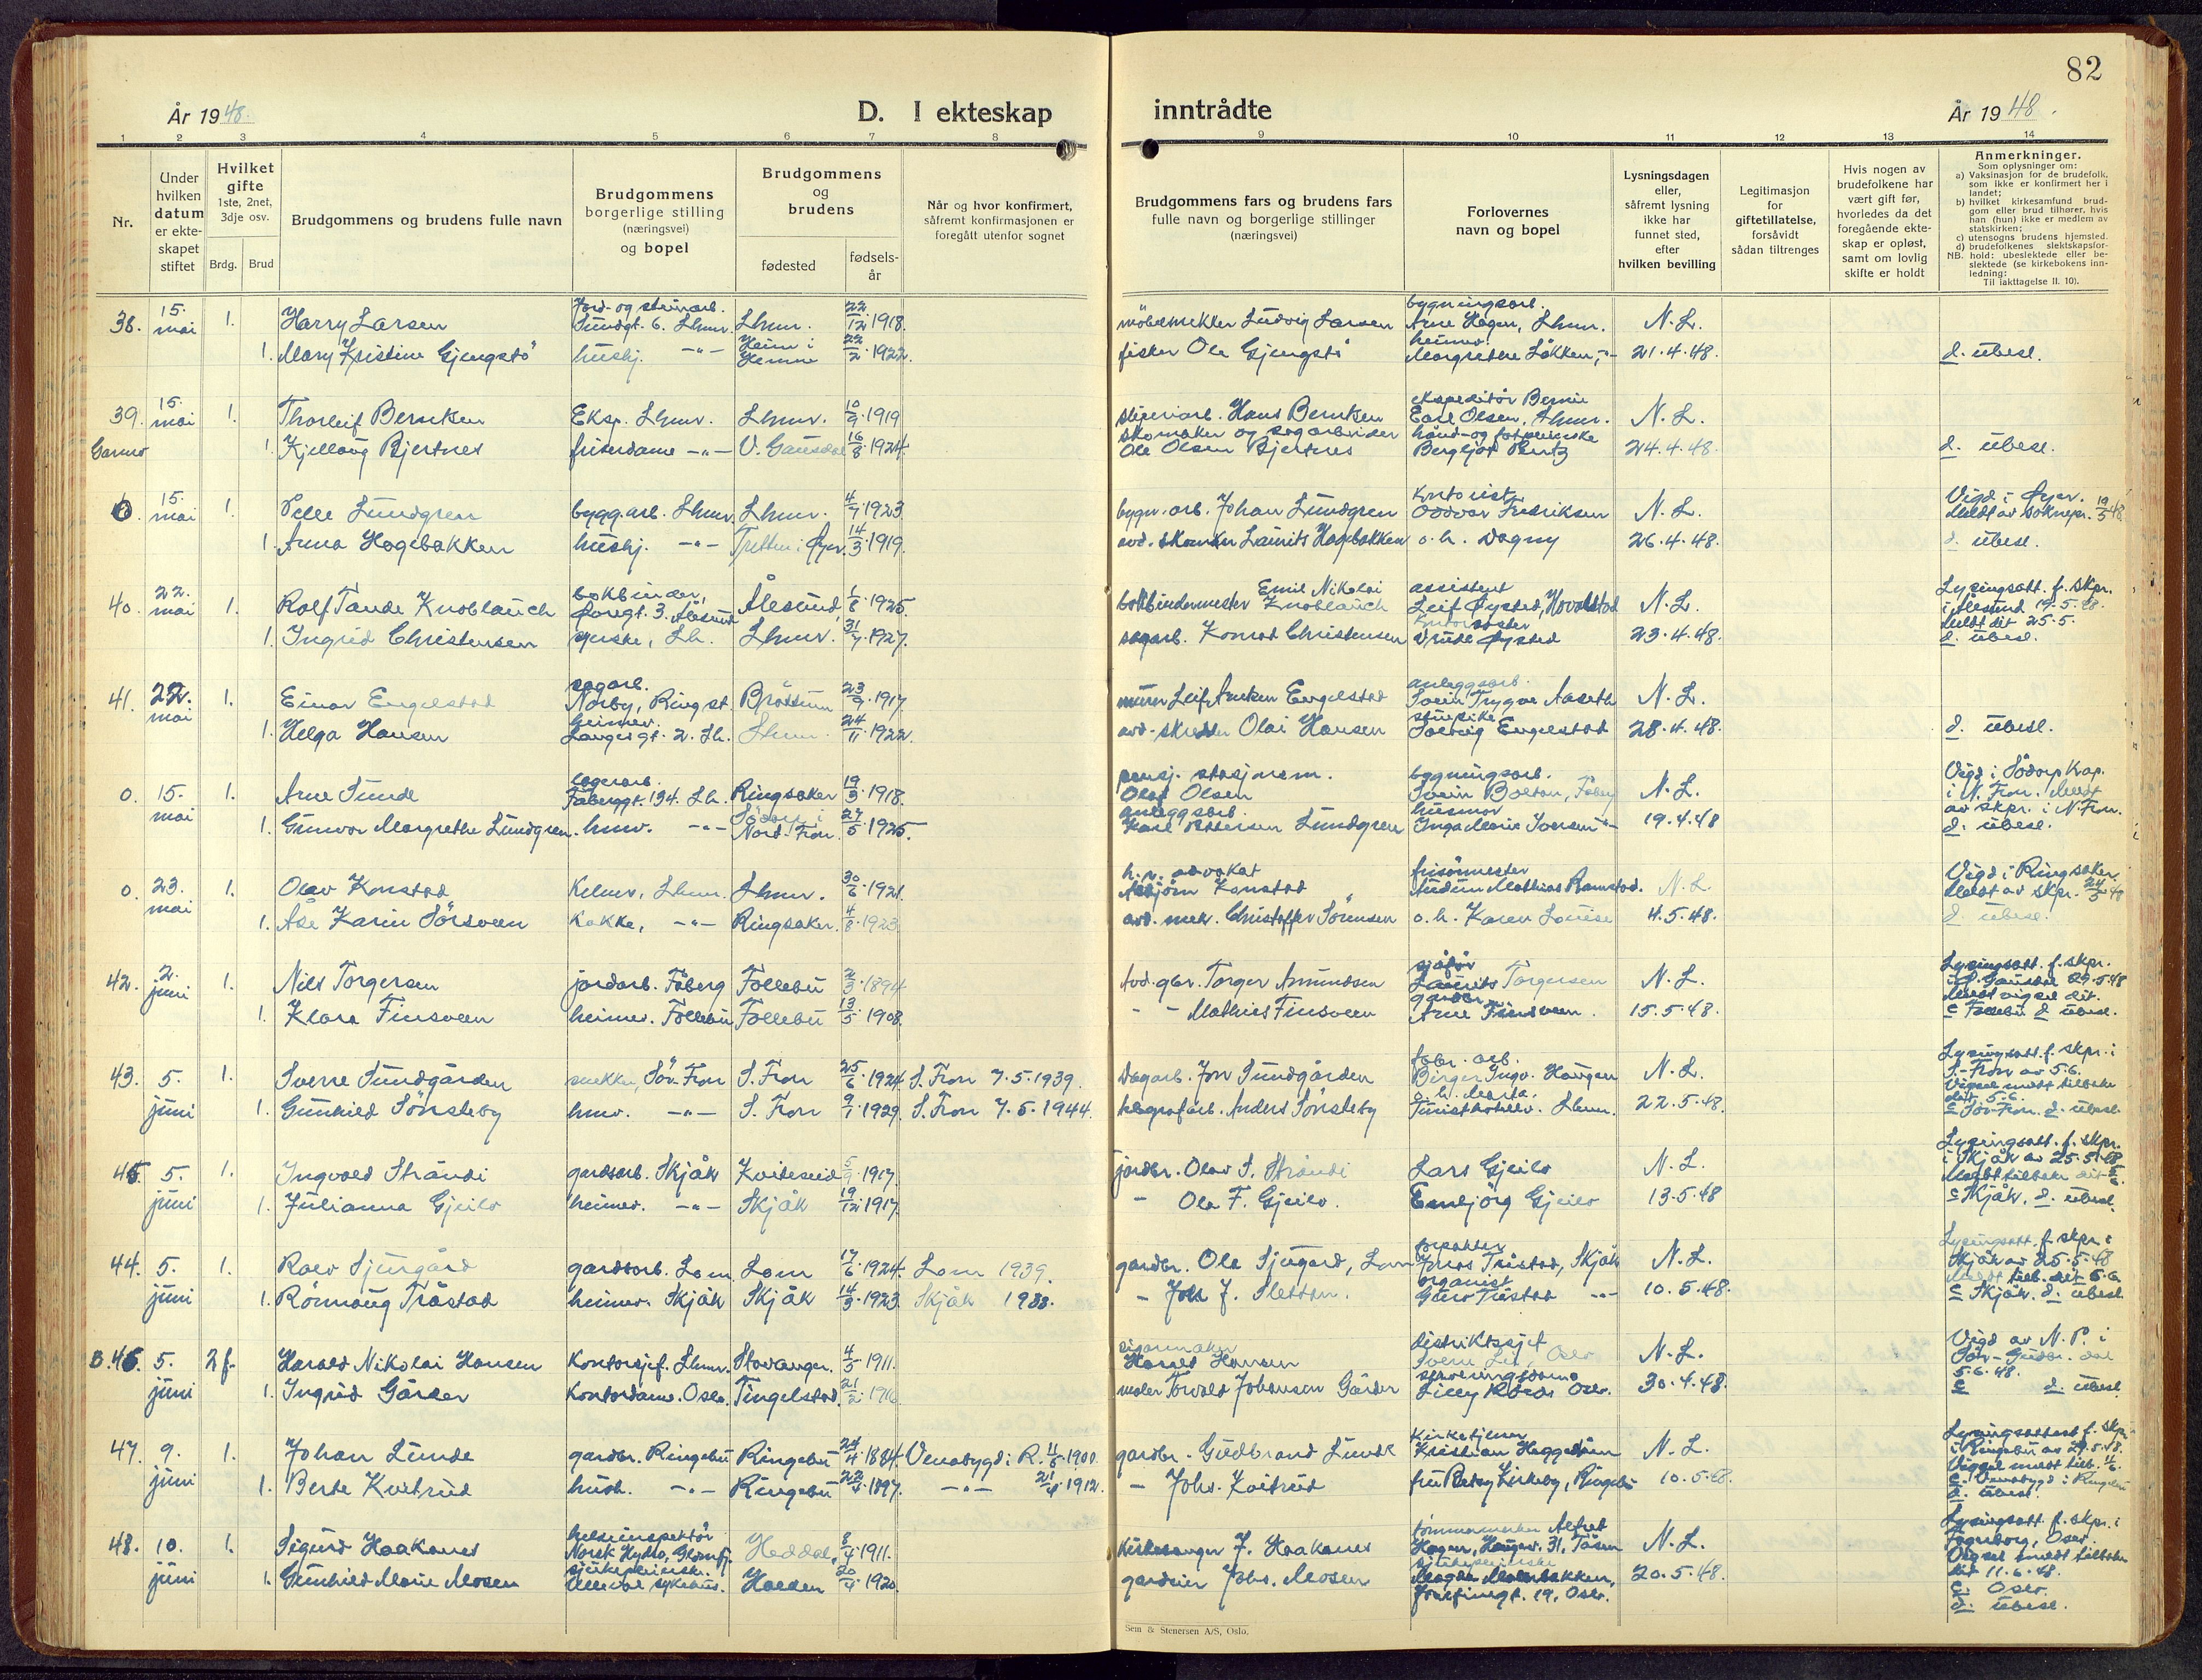 82
År 1948.
D. I ekteskap inntrådte
År 1948.
1 2 3 4 5 6 7 8 9 10 11 12 13 14
Nr.
Under hvilken datum er ekteskapet stiftet
Hvilket gifte 1ste, 2net, 3dje osv.
Brdg. Brud
Brudgommens og brudens fulle navn
Brudgommens borgerlige stilling (næringsvei) og bopel
Brudgommens og brudens
fødested
fødselsår
Når og hvor konfirmert, såfremt konfirmasjonen er foregått utenfor sognet
Brudgommens fars og brudens fars fulle navn og borgerlige stillinger (næringsvei)
Forlovernes navn og bopel
Lysningsdagen eller, såfremt lysning ikke har funnet sted, efter hvilken bevilling
Legitimasjon for giftetillatelse, forsåvidt sådan tiltrenges
Hvis nogen av brudefolkene har vært gift før, hvorledes da det foregående ekteskap er opløst, samt om lovlig skifte er holdt
Anmerkninger.
Som oplysninger om:
a) Vaksinasjon for de brudefolk, som ikke er konfirmert her i landet;
b) hvilket kirkesamfund brudgom eller brud tilhører, hvis han (hun) ikke er medlem av statskirken;
c) utensogns brudens hjemsted.
d) brudefolkenes slektskapsforhold: ubeslektede eller beslektede (se kirkebokens innledning:
NB. Til iakttagelse II. 10).
38. 15. mai 1. Harry Larsen Jord- og steinarb. Sundgt. 6. Lhmr. Lhmr. 22/12 1918. møbelsnekker Ludvig Larsen bygningsarb. Arne Hagen, Lhmr. N.L.
1. Mary Kristine Gjengstø hushj. -"- Heim i Hemne 22/2 1922. fisker Ole Gjengstø heimev. Margrethe Løkken, -"- 21.4.48. d. ubesl.
39. 15. mai 1. Thorleif Berntsen Eksp. Lhmr. Lhmr. 10/9 1919 Hans Berntsen ekspeditør Earl Olsen, Lhmr. N.L.
Garmo 1. Kjellaug Bjertnes friserdame -"- V. Gausdal 16/8 1924. skomaker og sagarbeider Ole Olsen Bjertnes hånd- og fotpleierske Bergljot 24.4.48. d. ubesl.
0 15. mai 1. Pelle Lundgren bygg.arb. Lhmr. Lhmr. 4/7 1923 bygn. arb. Johan Lundgren kontorist Oddvar Fredriksen N.L. Vigd i Øyer. Meldt av soknepr. 19/5 48.
1. Anna Hagebakken hushj. -"- Tretten i Øyer 14/3 1919. avd. skomaker Laurits Hagebakken o.h. Dagny 26.4.48. d. ubesl.
40. 22. mai 1. Rolf Tande Knoblauch bokbinder, 3. Ålesund Ålesund 1/8 1925. bokbindermester Emil Nikolai Knoblauch assistent Leif Øysted, N.L. Lysingsatt. f. skpr. i Ålesund 19.5.48. Meldt dit 25.5.
1. Ingrid Christensen syerske, Lh. Lhmr. 31/7 1927. sagarb. Konrad Christensen Øysted 23.4.48. d. ubesl.
41. 22. mai 1. Einar Engelstad sagarb. Nørby, Ringst. Brøttum 23/9 1917 murer Leif Engelstad anleggsarb. Svein Trygve Aaseth N.L.
1. Helga Hansen heimev. Langesgt. 2. Lh. Lhmr. 24/11 1922. avd. skredder Olai Hansen Solveig Engelstad 28.4.48. d. ubesl.
0. 15. mai 1. Arne Sunde lagerarb. Fåberggt. 134. Lh. Ringsaker 19/3 1918. pensj. stasjonsm. Olaf Olsen bygningsarb. Svein Bolton, Fåberg N.L. Vigd i Sødorp Kap. i N. Fron. Meldt av skpr. i N. Fron.
1. Gunvor Margrethe Lundgren. hmv. -"- Sødorp i Nord-Fron. 27/5 1925. anleggsarb. Karl Pettersen Lundgren husmor Inga Marie Iversen -"- 19.4.48 d. ubesl.
0. 23. mai 1. Olav Konstad Kelner, Lhmr. Lhmr. 30/6 1921. h.r. advokat Asbjørn Konstad frisørmester Audun Mathias Ramstad. N.L. Vigd i Ringsaker. Meldt av skpr. 24/5 48
1. Åse Karin Sørsveen Kokke, -"- Ringsaker. 4/8 1923 avd. mek. Christoffer Sørensen o.h. Karen Louise 4.5.48. d. ubesl.
42. 2. juni 1. Nils Torgersen jordarb. Fåberg Follebu 2/3 1894 Avd. gbr. Torger Amundsen sjåfør Laurits Torgersen N.L. Lysingsatt. f. skpr. i Ø. Gausdal 29.5.48 Meldt vigsel dit.
1. Klara Finsveen heimev. Follebu Follebu 13/5 1908. - - Mathies Finsveen gardbr. Arne Finsveen. 15.5.48. c Follebu d. ubesl.
43. 5. juni 1. Sverre Sundgården snekker, Sør-Fron S. Fron 25/6 1924 S. Fron 7.5.1939. Dagarb. Jon Sundgården fabr. arb. Birger Ingv. Haugen N.L. Lysingsatt. f. skpr. i S.-Fron av 5.6. Vigsel meldt tilbake dit 5.6.
1. Gunhild Sønsteby hmv. -"- S. Fron 9/1 1929. S. Fron 7.5.1944. telegrafarb. Anders Sønsteby o.h. Marta. Turisthotellv. Lhmr. 22.5.48. c Sør-Fron. d. ubesl.
45. 5. juni 1. Ingvald Strandi gardsarb. Skjåk Kviteseid 5/9 1917. jordbr. Olav S. Strandi Lars Gjeilo N.L. Lysingsatt. f. skpr. i Skjåk av 25.5.48. Meldt tilbake dit 5/6.
1. Julianna Gjeilo heimev. -"- Skjåk 19/12 1917 - Ola F. Gjeilo. Embjørg Gjeilo 13.5.48 c Skjåk, d. ubesl.
44. 5. juni 1. Rolv Sjurgård gardsarb. Lom Lom 17/6 1924. Lom 1939. gardbr. Ole Sjugard, Lom Tråstad, Skjåk N.L. Lysingsatt. f. skpr. i Skjåk av 25.5.48 Meldt tilb. dit 5.6.
1. Rønnaug Tråstad heimev. Skjåk Skjåk 14/3 1923 Skjåk 1938. - Joh. J. Sletten. organist Tråstad -"- 10.5.48. c Skjåk. d. ubesl.
B.46. 5. juni 2 f. Harald Nikolai Hansen Kontorsjef. Lhmr. Stavanger. 4/5 1911. sigarmaker Harald Hansen distriktssjef Sverre Lie, Oslo N.L. Vigd av N.P. i Sør-Gudbr. dal 5.6.48.
1. Ingrid Gårder Kontordame. Oslo. Tingelstad. 21/2 1916 maler Torvald Johansen Gårder Lilly Oslo. 30.4.48. c d. ubesl.
47. 9. juni 1. Johan Lunde gardbr. Ringebu Ringebu 24/4 1884 Venabygd i R. 11/6 1900. gardbr. Gudbrand Lunde kirketjener Kristian Heggelien N.L. Lysingsattest f. skpr. i Ringebu av 29.5.48. Vigsel meldt tilb. 11/6.
1. Berte Kvitrud hush. -"- Ringebu 22/4 1897. -"- 21/4 1912. - Johs. Kvitrud fru Betsy Kirkeby, Ringebu 10.5.48. c. Venabygd i Ringebu d. ubesl.
48. 10. juni 1. Sigurd Haakanes helseinspektør Norsk Hydro, Glomfj. Heddal, 8/4 1911. Kirkesanger J. Haakanes tømmermester Alfred Hagen, Haugev. 31, Tåsen N.L. Lysingsatt. f. skpr. i Fagerborg, Oslo. Vigsel meldt tilbake dit 11.6.48.
1. Gunhild Marie Mosen sjukepleierske. Ullevål sykehus. Halden 20/4 1920. gardeier Johs. Mosen sjukepleierske Magda Josefinegt. 19, Oslo. 20.5.48. c. Oslo. d. ubesl.
Sem & Stenersen A/S, Oslo.